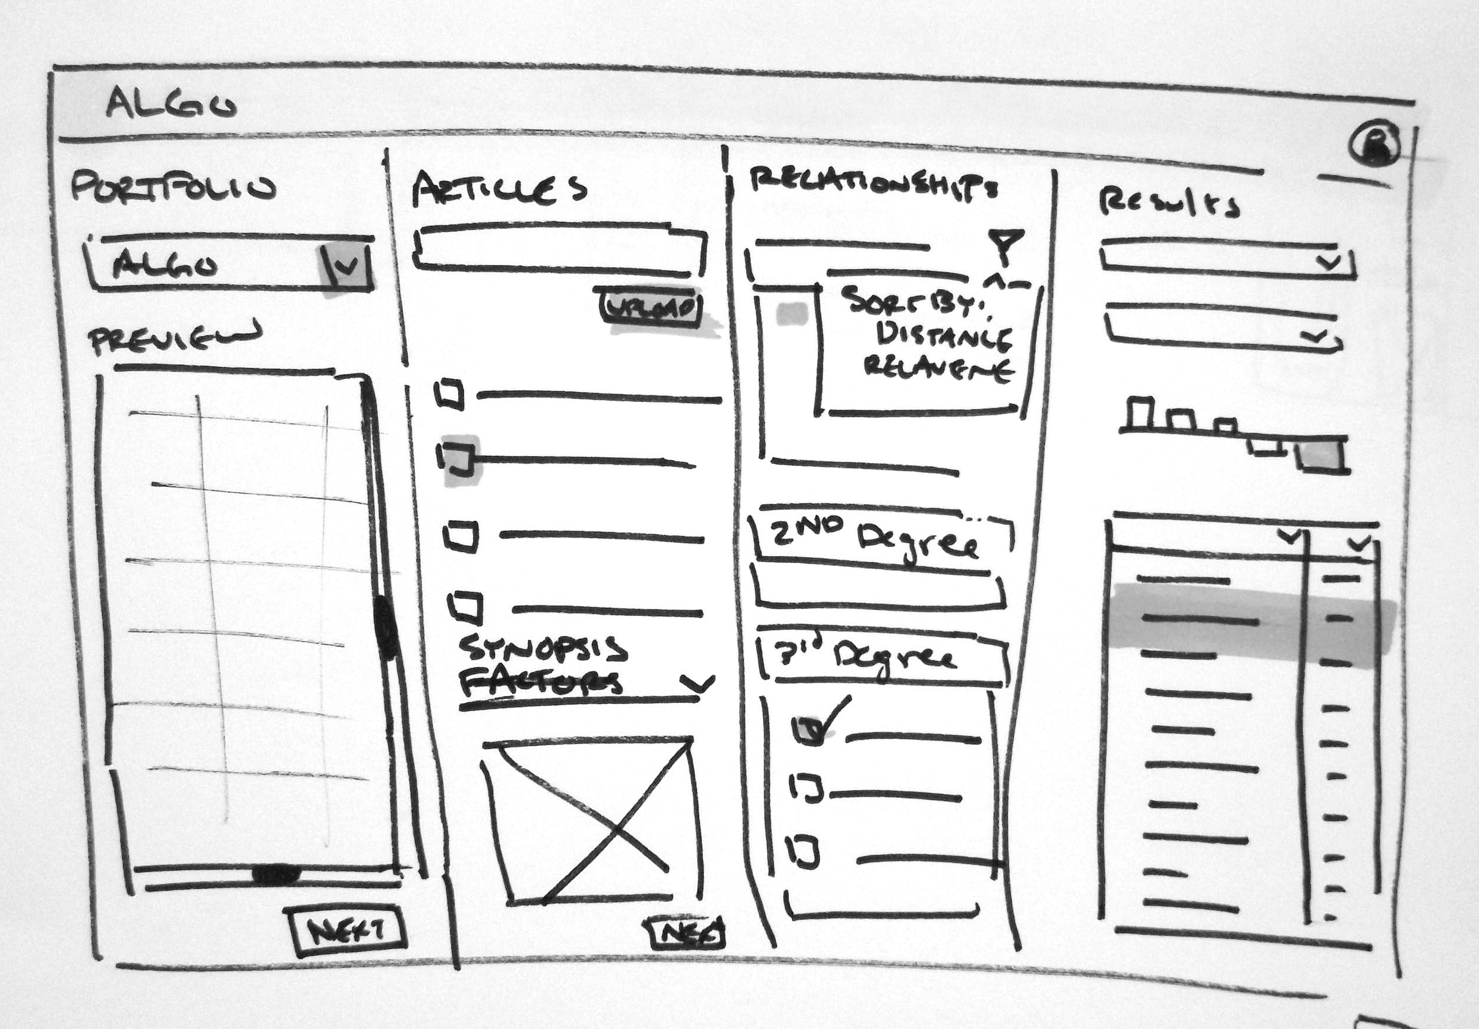 ALGO
PORTFOLIO
ALGO
PREVIEW
NEXT
ARTICLES
UPLOAD
SYNOPSIS
FACTORS
NEX
RELATIONSHIPS
SORT BY:
DISTANCE
RELAVENE
2ND Degree
3rd Degree
Results